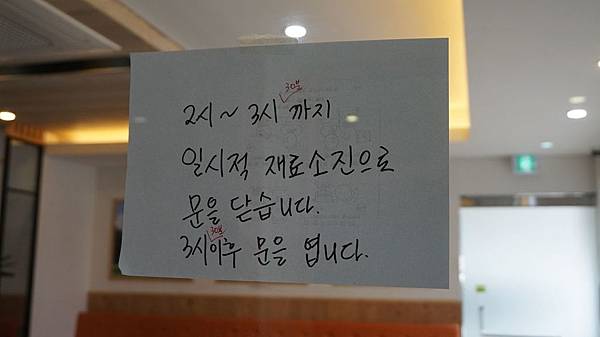 2시 ~ 3시 30분 까지
일시적 재료소진으로
문을 닫습니다.
3시 30분 이후 문을 엽니다.